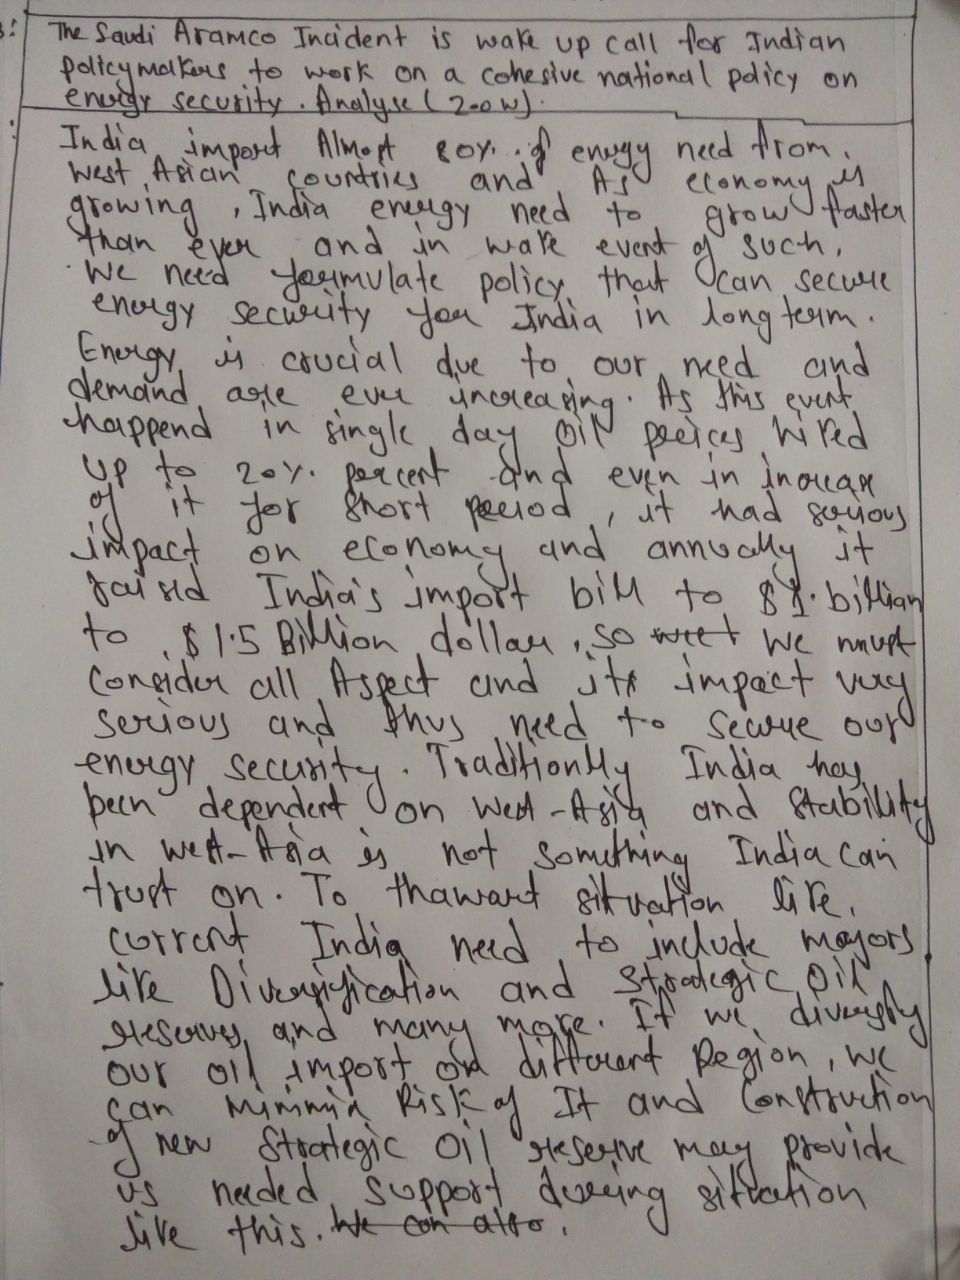 The Saudi Aramco Incident is wake up call for Indian
policymakers to work on a cohesive national policy on
energy security. Analyse (200w).
India import Almost 80% of energy need from
West Asian countries and As economy is
growing, India energy need to grow faster
than ever and in wake event of such,
We need formulate policy that can secure
energy security for India in long term.
Energy is crucial due to our need and
demand are ever increasing. As this event
happend in single day oil preices hired
up to 20% percent and even in increas
of it for short period, it had serious
impact on economy and annually it
raisd India's import bill to $1. billian
to $1.5 Billion dollar, so we must
Consider all Aspect and its impact very
serious and thus need to secure our
energy security. Traditionlly India has
been dependent on West-Asia and stability
in west-Asia is not something India can
trust on. To thawart situation like
current India need to include mayors
like Diversification and Strategic Oil
reserves and many more. If we diversfy
our oil import on different Region, we
can Minmin Risk of It and Construction
of new Strategic Oil reserve may provide
us needed support during sitvation
like this. We can also.